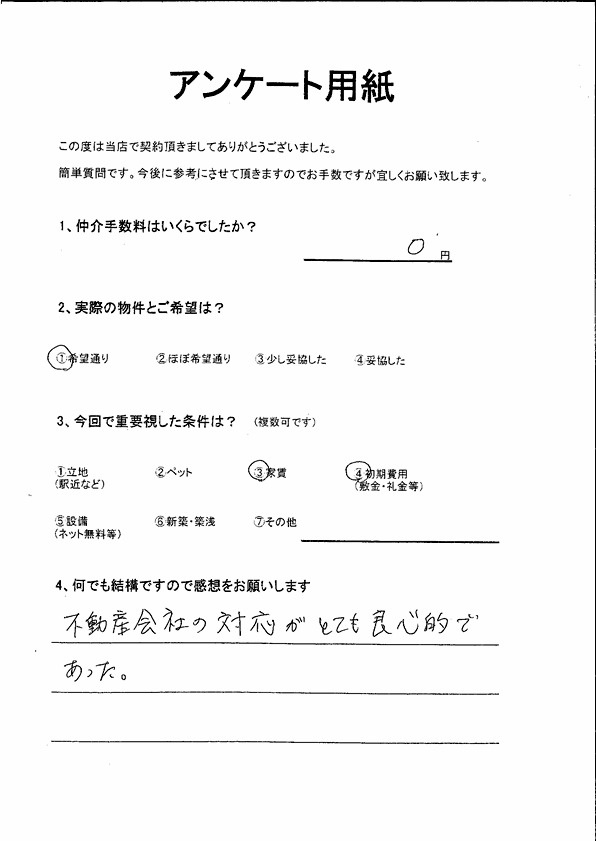 アンケート用紙
この度は当店で契約頂きましてありがとうございました。
簡単質問です。今後に参考にさせて頂きますのでお手数ですが宜しくお願い致します。
1、仲介手数料はいくらでしたか？
0 円
2、実際の物件とご希望は？
①希望通り ②ほぼ希望通り ③少し妥協した ④妥協した
3、今回で重要視した条件は？ （複数可です）
①立地 ②ペット ③家賃 ④初期費用
（駅近など） （敷金・礼金等）
⑤設備 ⑥新築・築浅 ⑦その他
（ネット無料等）
4、何でも結構ですので感想をお願いします
不動産会社の対応がとても良心的で
あった。